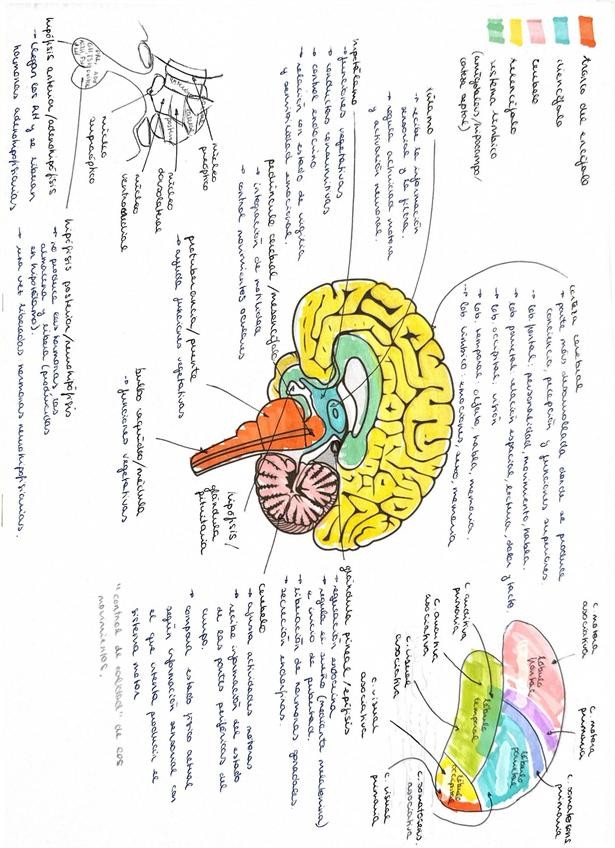 tronco del encéfalo
diencéfalo
cerebelo
telencéfalo
sistema límbico
(amígdalas/hipocampo/
control septal)
tálamo
→ recibe la información
sensorial y la filtra.
→ regula actividad motora
y activación neuronal.
hipotálamo
→ funciones vegetativas
→ conductas consumativas
→ control endocrino
→ relación con estado de vigilia
y sensibilidad emocional.
pedúnculo cerebral/mesencéfalo
→ integración de motilidad
→ control movimientos oculares
protuberancia/puente
→ ayuda funciones vegetativas
bulbo raquídeo/médula
→ funciones vegetativas
núcleo
preóptico
núcleo
dorsolateral
núcleo
ventromedial
núcleo
supraóptico
hipófisis anterior/adenohipófisis
→ llegan con RH y se liberan
hormonas adenohipofisiarias
hipófisis posterior/neurohipófisis
→ no produce las hormonas, las
almacena y libera (producidas
en hipotálamo).
→ una vez liberadas hormonas neurohipofisiarias.
corteza cerebral
→ parte más desarrollada donde se produce
conciencia, percepción y funciones superiores
→ lob frontal, personalidad, movimiento, habla.
→ lob parietal relación espacial, lectura, dolor y tacto.
→ lob occipital, visión
→ lob temporal: olfato, habla, memoria.
→ lob límbico: emociones, sexo, memoria
hipófisis/
glándula
pituitaria
glándula pineal/epífisis
→ regulación endocrina
→ regula el sueño (mediante melatonina)
e inicio de pubertad
→ liberación de hormonas gonadales
→ secreción endorfinas
cerebelo
→ ajusta actividades motoras
→ recibe información del estado
de las partes periféricas del
cuerpo.
→ compara estado físico actual
según información sensorial con
el que intenta producir el
sistema motor
"control de calidad" de los
movimientos.
c. motora
asociativa
c. motora
primaria
c. somatosens
primaria
c. somatosens.
asociativa
c. visual
primaria
c. visual
asociativa
c. visual
asociativa
c. auditiva
asociativa
c. auditiva
primaria
lóbulo
frontal
lóbulo
parietal
lóbulo
temporal
lóbulo
occipital